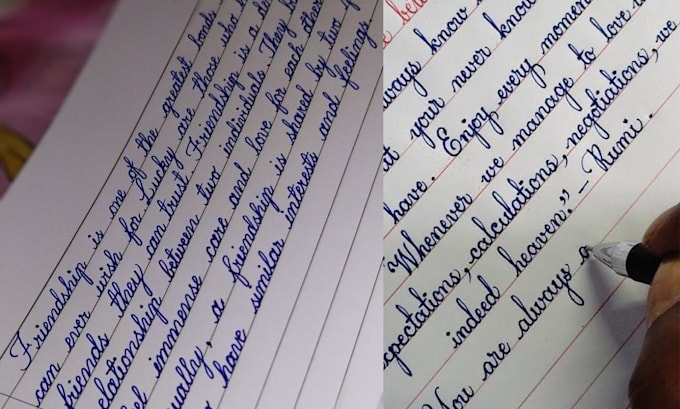 Friendship is one of the greatest bonds
can ever wish for. Lucky are those who
friends they can trust. Friendship is a
elationship between two individuals. They
el immense care and love for each other
ually, a friendship is shared by two
have similar interests and feelings
e
ways know
t your never know
have. Enjoy every momen
"Whenever we manage to love
xpectations, calculations, negotiations, we
indeed heaven." - Rumi.
You are always a